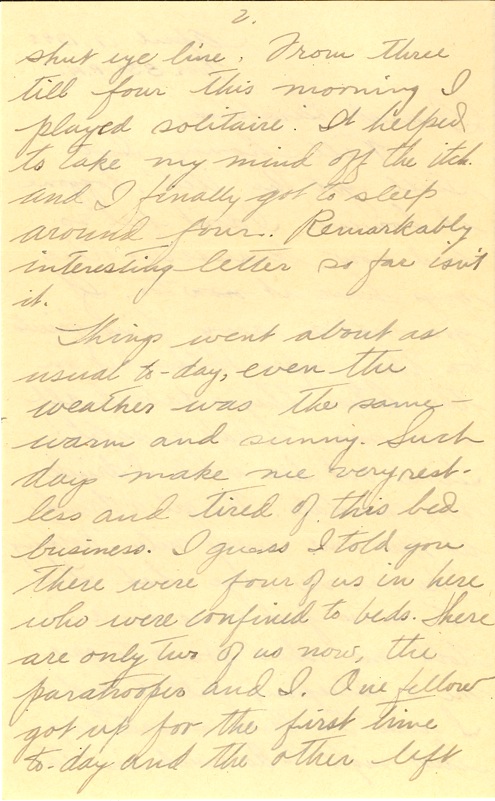 2.
shut eye line. From three
till four this morning I
played solitaire. It helped
to take my mind off the itch
and I finally got to sleep
around four. Remarkably
interesting letter so far isn't
it.
Things went about as
usual to-day, even the
weather was the same –
warm and sunny. Such
days make me very rest-
less and tired of this bed
business. I guess I told you
there were four of us in here
who were confined to beds. There
are only two of us now, the
paratrooper and I. One fellow
got up for the first time
to-day and the other left